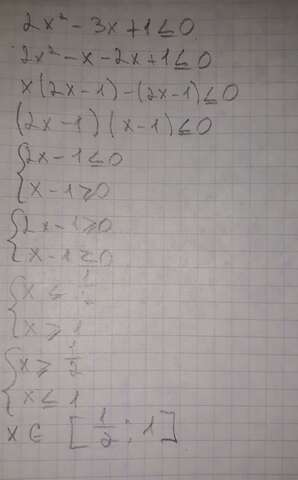 2x² - 3x + 1 ≤ 0
2x² - x - 2x + 1 ≤ 0
x(2x-1) - (2x-1) ≤ 0
(2x-1)(x-1) ≤ 0
{2x-1 ≤ 0
x-1 ≥ 0
{2x-1 ≥ 0
x-1 ≤ 0
{x ≤ 1/2
x ≥ 1
{x ≥ 1/2
x ≤ 1
x ∈ [1/2; 1]